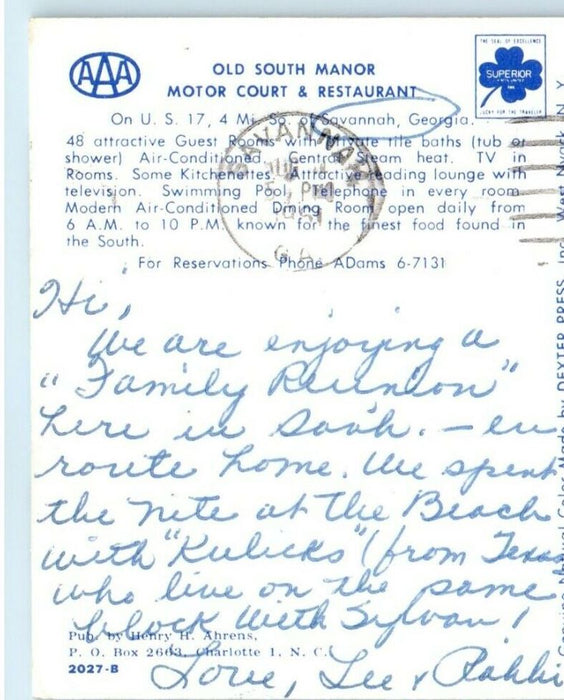 AAA
THE SEAL OF EXCELLENCE
SUPERIOR
LUCKY FOR THE TRAVELER
OLD SOUTH MANOR
MOTOR COURT & RESTAURANT
On U. S. 17, 4 Mi. So. of Savannah, Georgia.
48 attractive Guest Rooms with private tile baths (tub or
shower) Air-Conditioned. Central Steam heat. TV in
Rooms. Some Kitchenettes. Attractive reading lounge with
television. Swimming Pool, Telephone in every room.
Modern Air-Conditioned Dining Room open daily from
6 A.M. to 10 P.M. known for the finest food found in
the South.
For Reservations Phone ADams 6-7131
SAVANNAH
PM
GA.
Hi,
We are enjoying a
"Family Reunion"
here in Savh. – en
route home. We spent
the nite at the Beach
with "Kulicks" (from Texas
who live on the same
block with Sylvan!
Love, Lee &
Pub. by Henry H. Ahrens,
P. O. Box 2663, Charlotte 1, N. C.
2027-B
Genuine Natural Color Made by DEXTER PRESS, Inc. West Nyack N Y